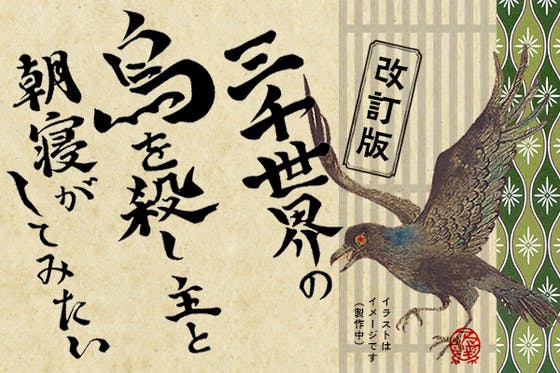 三千世界の
烏を殺し主と
朝寝が
してみたい
改訂版
イラストは
イメージです
（製作中）